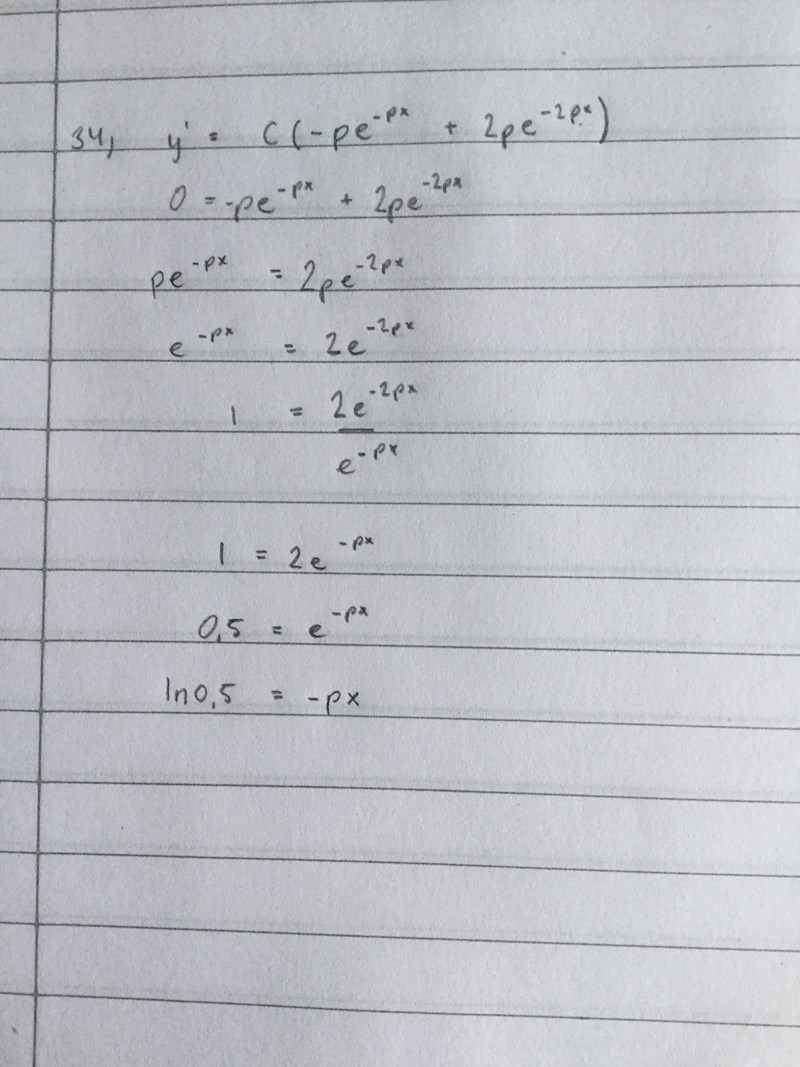 34, y' = C(-pe^-px + 2pe^-2px)
0 = -pe^-px + 2pe^-2px
pe^-px = 2pe^-2px
e^-px = 2e^-2px
1 = 2e^-2px
e^-px
1 = 2e^-px
0,5 = e^-px
ln0,5 = -px